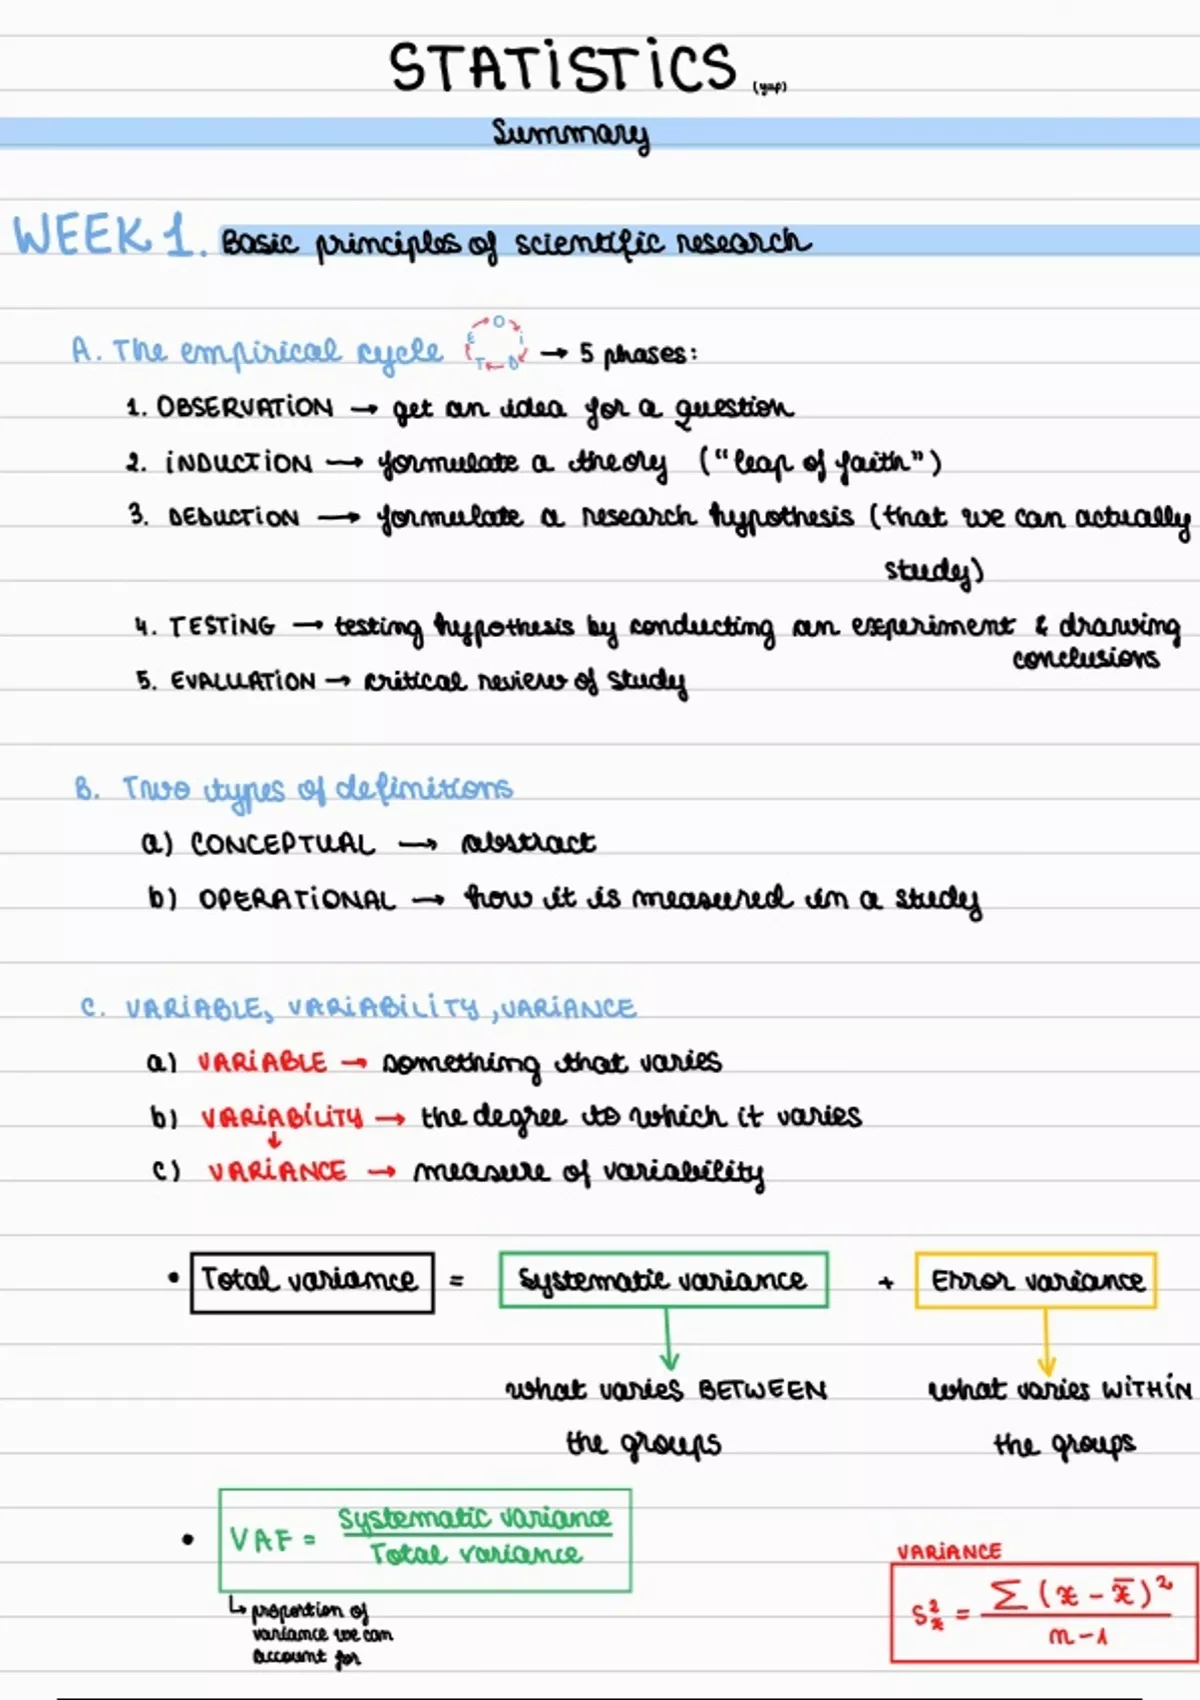 STATISTICS (yup)
Summary
WEEK 1. Basic principles of scientific research
A. The empirical cycle O I D T E → 5 phases:
1. OBSERVATION → get an idea for a question
2. INDUCTION → formulate a theory ("leap of faith")
3. DEDUCTION → formulate a research hypothesis (that we can actually
study)
4. TESTING → testing hypothesis by conducting an experiment & drawing
conclusions
5. EVALUATION → critical review of study
B. Two types of definitions
a) CONCEPTUAL → abstract
b) OPERATIONAL → how it is measured in a study
C. VARIABLE, VARIABILITY, VARIANCE
a) VARIABLE → something that varies
b) VARIABILITY → the degree to which it varies
↓
c) VARIANCE → measure of variability
• Total variance = Systematic variance + Error variance
what varies BETWEEN what varies WITHIN
the groups the groups
• VAF = Systematic variance / Total variance
↳ proportion of
variance we can
account for
VARIANCE
S²ₓ = Σ (x - x̄)² / n-1